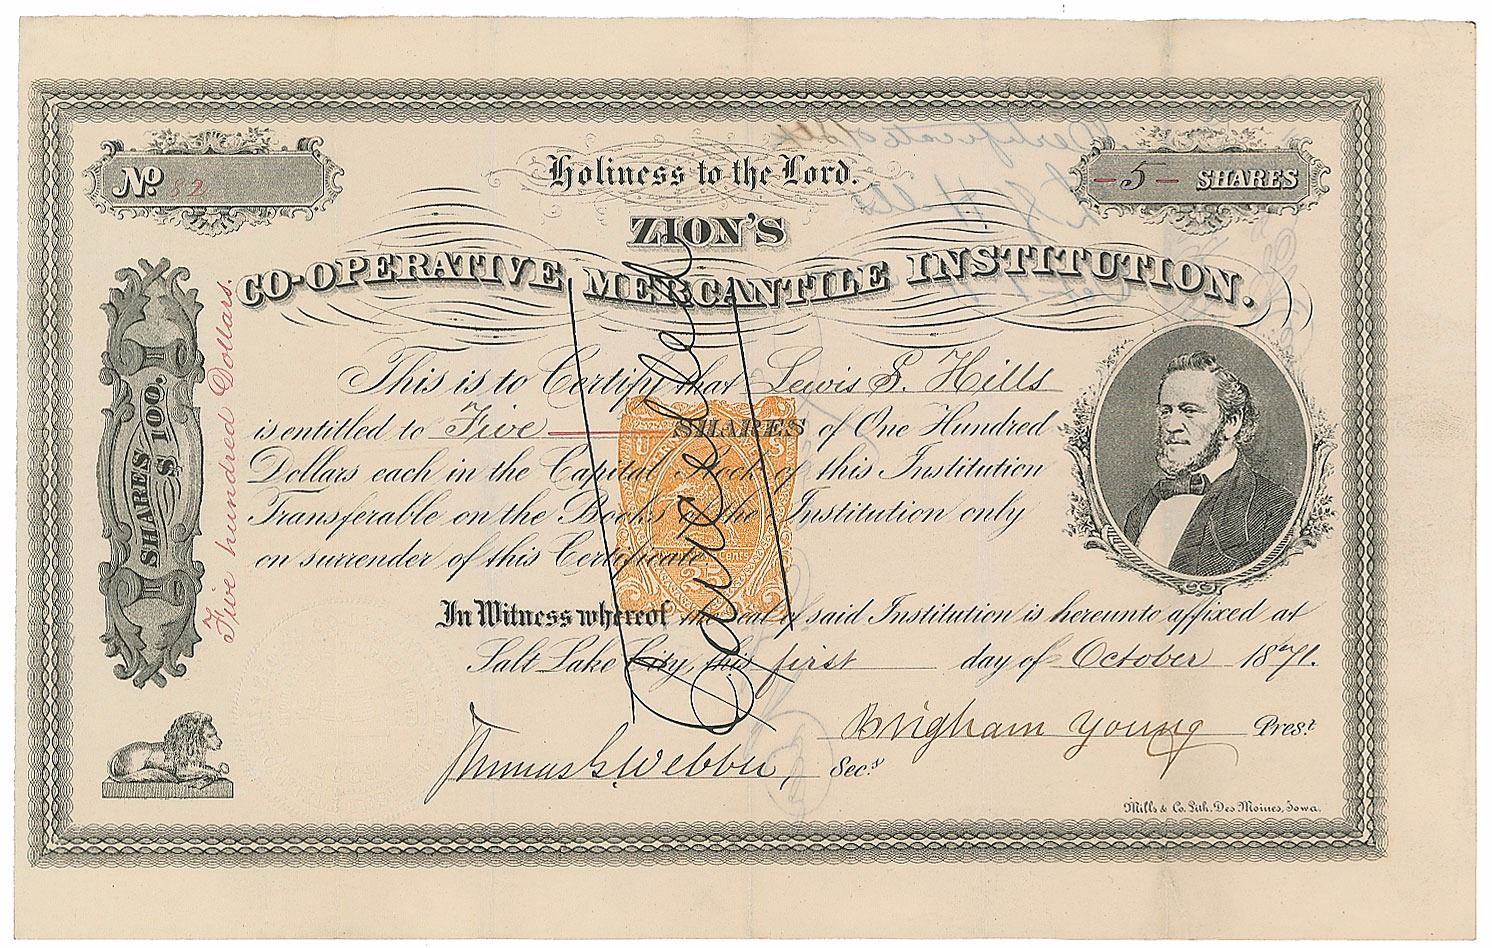 No 32
Holiness to the Lord.
- 5 - SHARES
ZION'S
CO-OPERATIVE MERCANTILE INSTITUTION.
SHARES $100.
Five hundred Dollars.
This is to Certify that Lewis S. Hills
is entitled to Five SHARES of One Hundred
Dollars each in the Capital Stock of this Institution
Transferable on the Books of the Institution only
on surrender of this Certificate.
U S
Cents
25
Cancelled
In Witness whereof the seal of said Institution is hereunto affixed at
Salt Lake City, this first day of October 1871.
Brigham Young Prest
Thomas G Webber Secy
Mills & Co. Lith. Des Moines, Iowa.